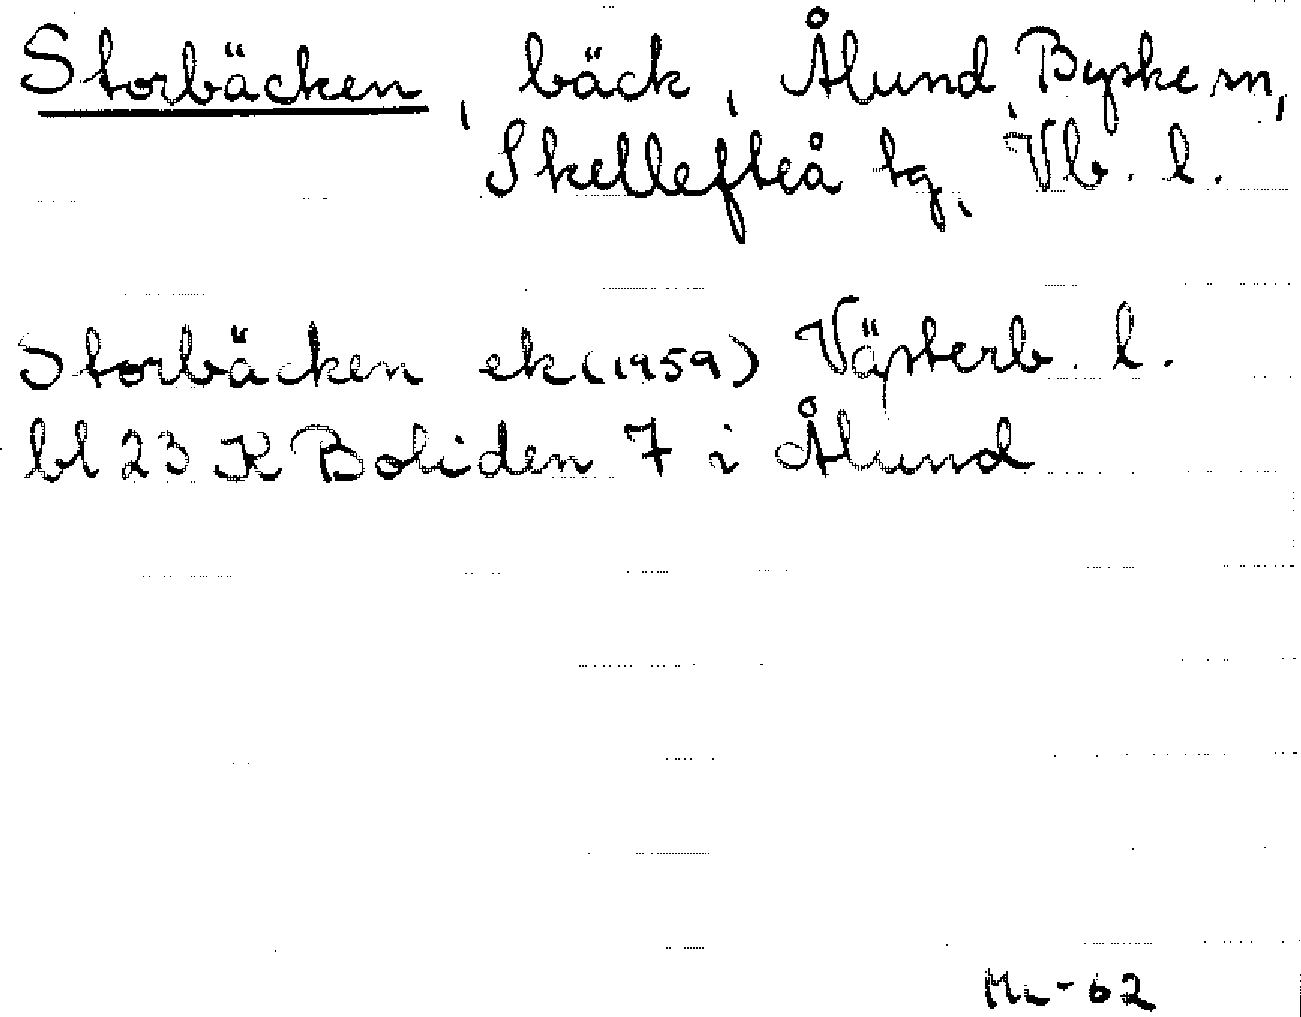 Storbäcken, bäck, Ålund, Byske sn,
Skellefteå tg, Vb. l.
Storbäcken ek (1959) Västerb. l.
bl 23 K Boliden 7 i Ålund
-62